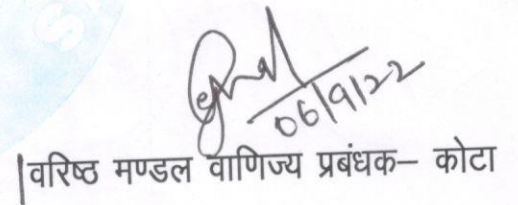 06/9/22
वरिष्ठ मण्डल वाणिज्य प्रबंधक– कोटा